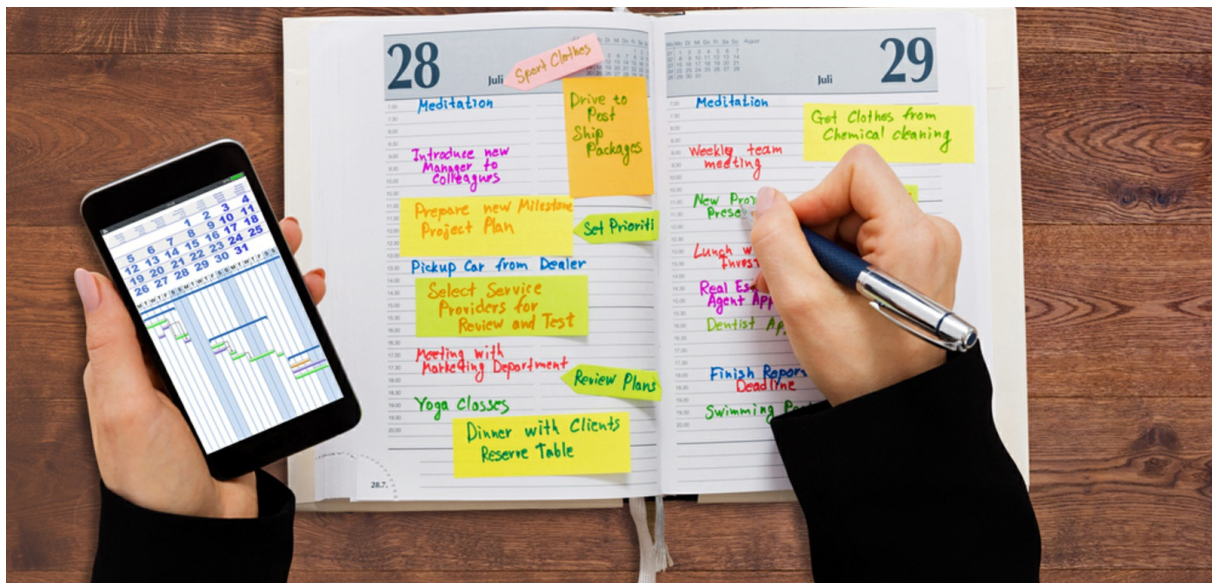 28
Juli
Sport Clothes
Meditation
Drive to
Post
Ship
Packages
Introduce new
Manager to
Colleagues
Prepare new Milestone
Project Plan
Set Prioriti
Pickup Car from Dealer
Select Service
Providers for
Review and Test
Meeting with
Marketing Department
Review Plans
Yoga Classes
Dinner with Clients
Reserve Table
28.7.
August
Juli
29
Meditation
Get Clothes from
Chemical cleaning
Weekly team
meeting
New
Lunch
Real
Agent
Dentist
Finish
Deadline
Swimming
1 2 3 4
5 6 7 8 9 10 11
12 13 14 15 16 17 18
19 20 21 22 23 24 25
26 27 28 29 30 31